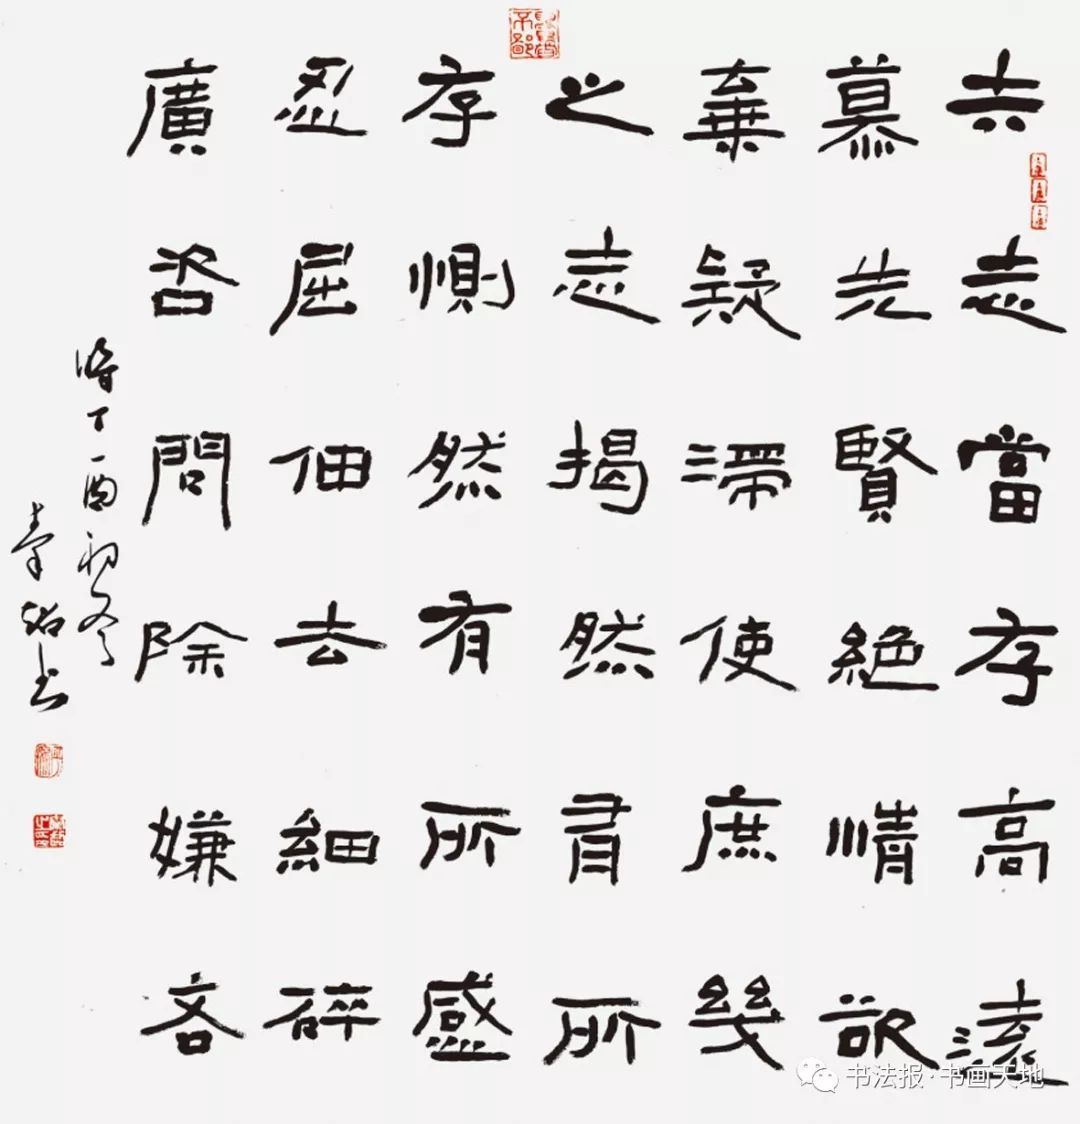 夫志當存高遠
慕先賢絶情欲
棄疑滯使庶幾
之志揭然有所
存惻然有所感
忍屈伸去細碎
廣咨問除嫌吝
時丁酉初冬
书法报·书画天地